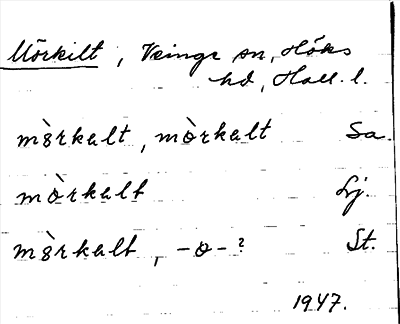 Mörkilt, Veinge sn, Höks
hd, Hall. l.
mø̀rkəlt, mòrkəlt Sa.
mòrkəlt Lj.
mø̀rkəlt, -o-? St.
1947.